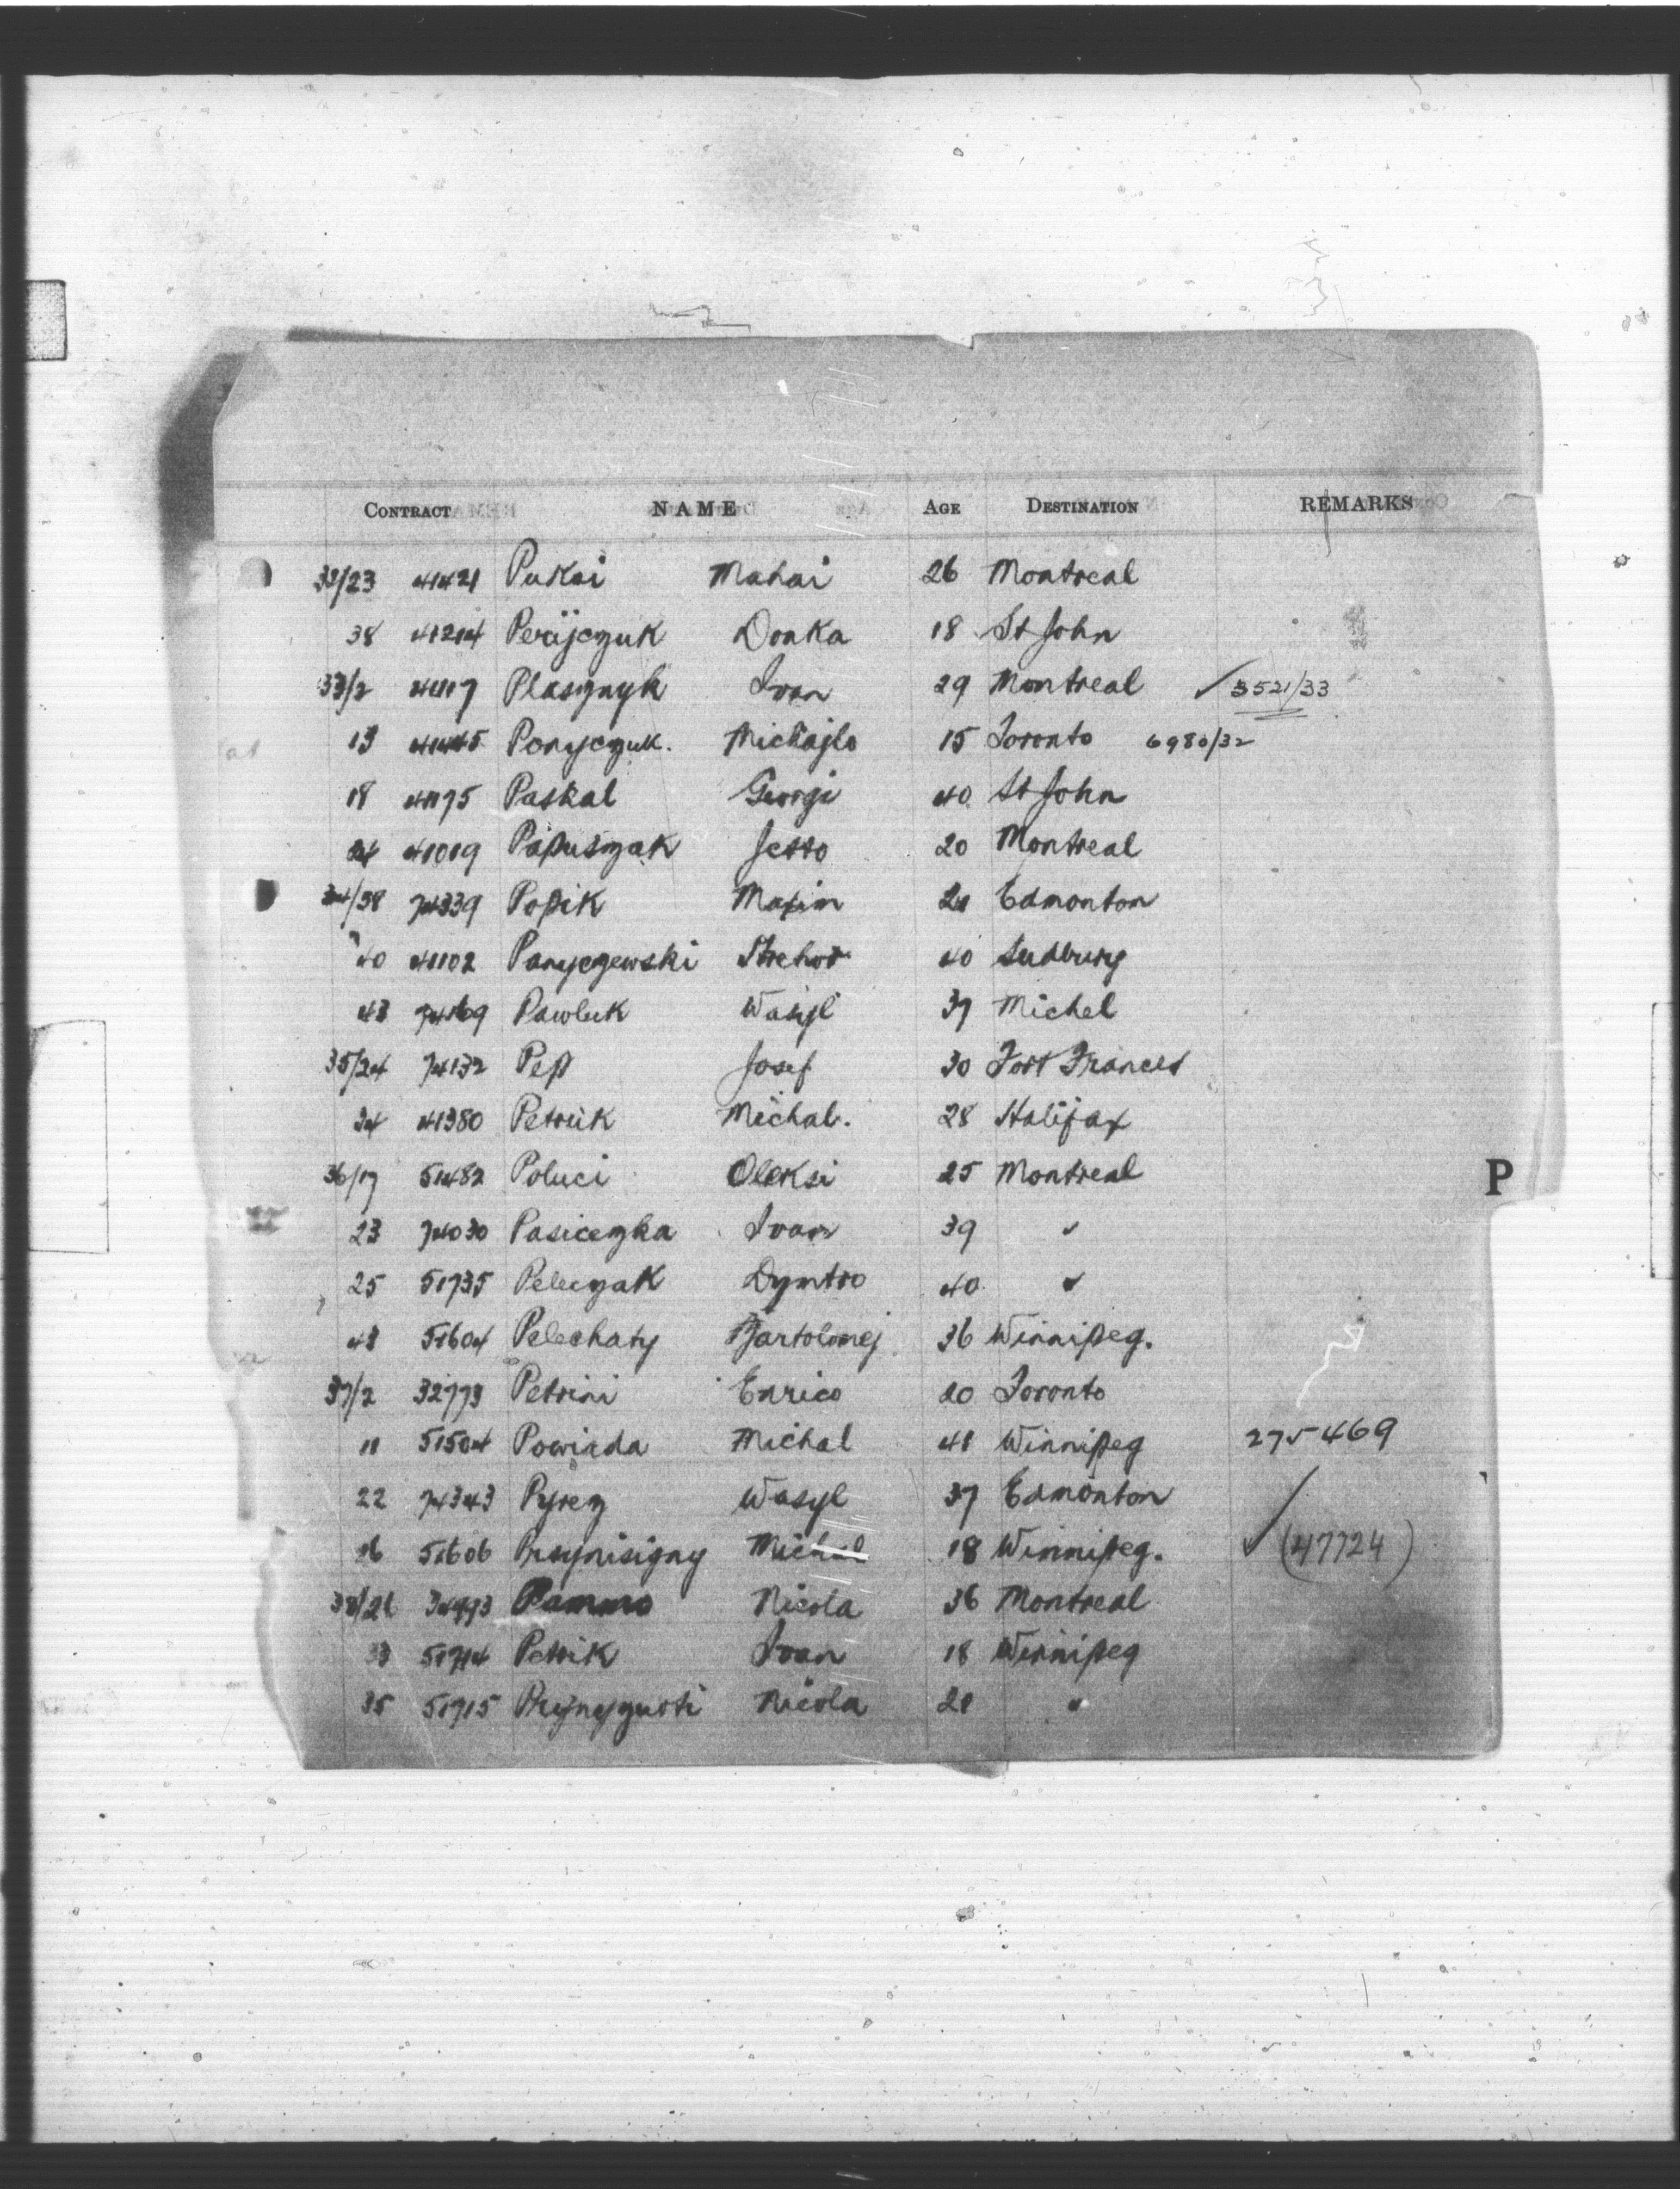 CONTRACT NAME AGE DESTINATION REMARKS
32/23 41421 Pukai Mahai 26 Montreal
38 41214 Perijczuk Donka 18 St John
33/2 41117 Plasznyk Ivan 29 Montreal ✓ 3521/33
13 41445 Ponyczuk. Michajlo 15 Toronto 6980/32
18 41175 Paskal Georgi 40 St John
24 41019 Papuszak Jesso 20 Montreal
34/38 74339 Popik Maxim 21 Edmonton
40 41102 Panyczewski 40 Sudbury
43 74169 Pawluk Wasyl 37 Michel
35/24 74132 Pep Josef 30 Fort Frances
34 41380 Petruk Michal. 28 Halifax
36/17 51482 Poluci Oleksi 25 Montreal
23 74030 Pasiczka Ivan 39 "
25 51735 Peleczak Dymtro 40 "
43 51604 Pelechaty Bartolomej 36 Winnipeg.
37/2 32773 Petrini Enrico 20 Toronto
11 51504 Powiada Michal 41 Winnipeg 275469
22 74343 Pyrez Wasyl 37 Edmonton
26 51606 Prsynisigny Michal 18 Winnipeg. ✓ (47724)
38/21 Nicola 36 Montreal
33 51714 Petrik Ivan 18 Winnipeg
35 51715 Nicola 21 "
P